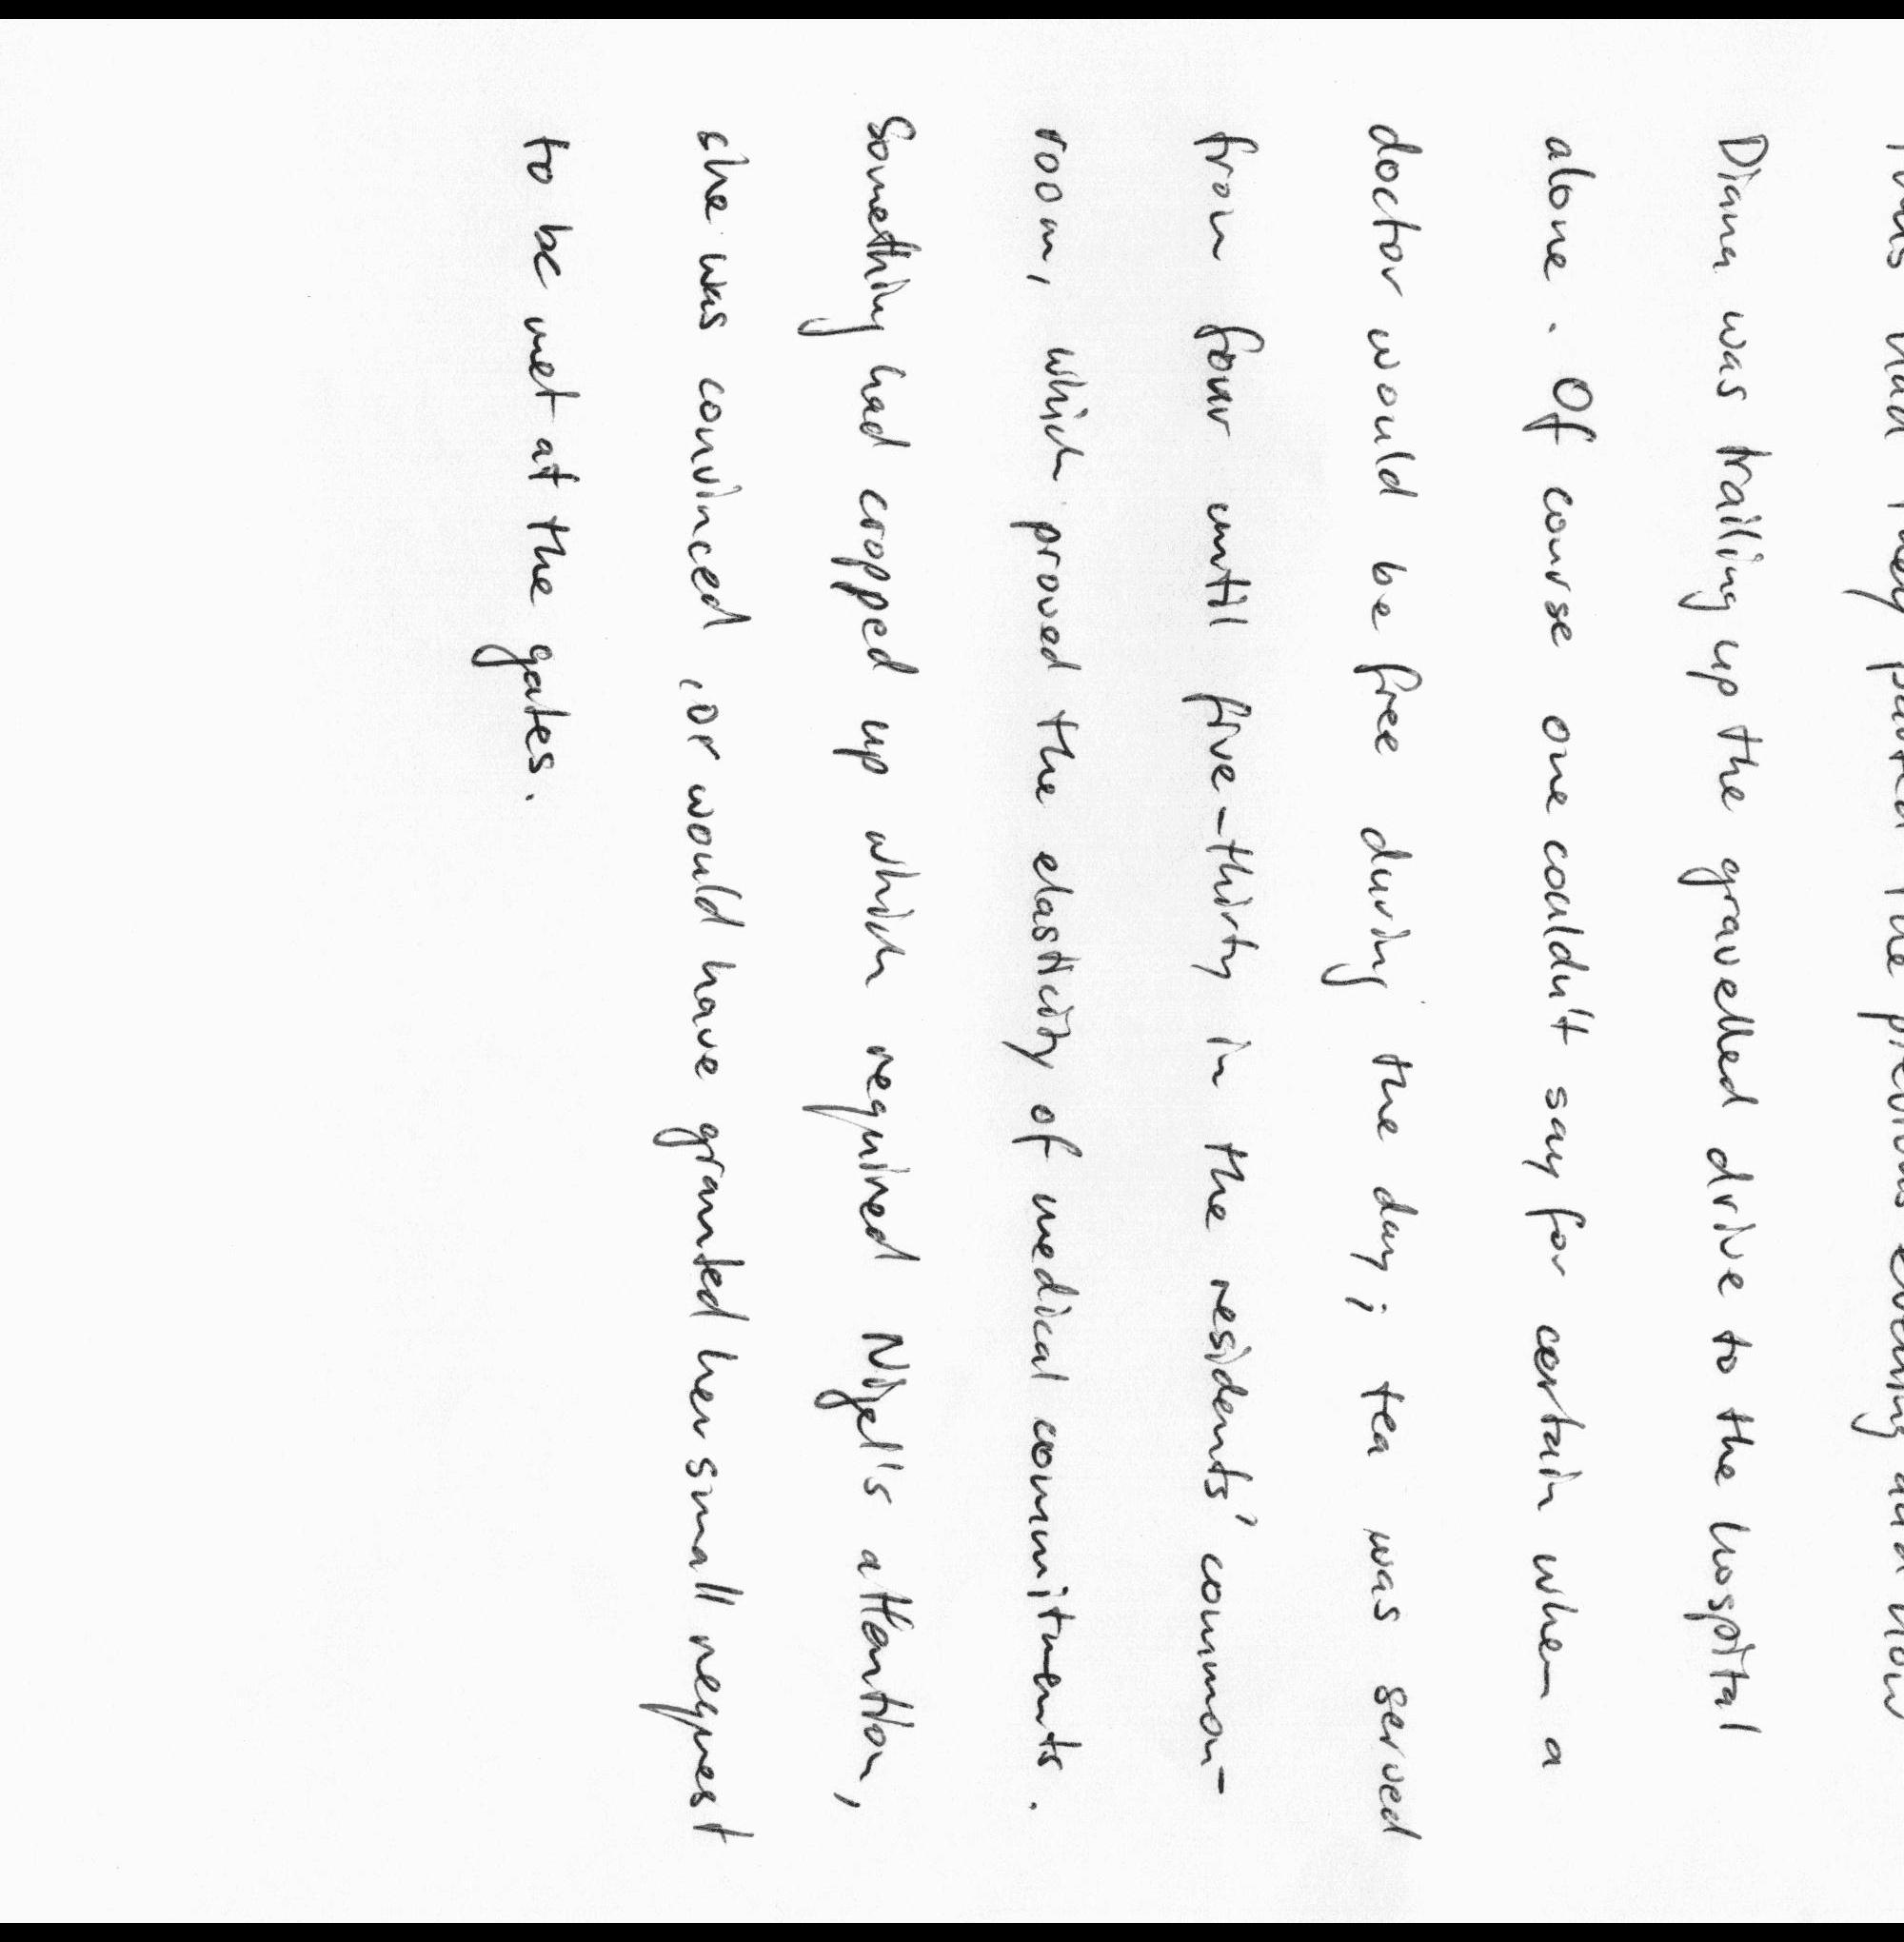 Thus had they parted the previous evening and now
Diana was trailing up the gravelled drive to the hospital
alone. Of course one couldn't say for certain when a
doctor would be free during the day; tea was served
from four until five-thirty in the residents' common-
room, which proved the elasticity of medical commitments.
Something had cropped up which required Nigel's attention,
she was convinced, or would have granted her small request
to be met at the gates.